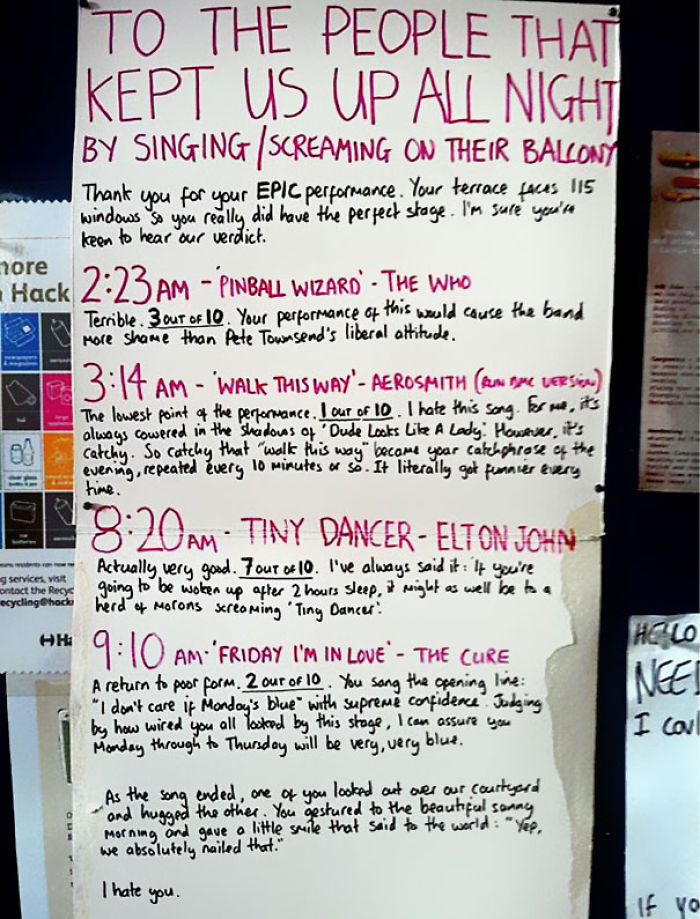 TO THE PEOPLE THAT
KEPT US UP ALL NIGHT
BY SINGING/SCREAMING ON THEIR BALCONY
Thank you for your EPIC performance. Your terrace faces 115
windows so you really did have the perfect stage. I'm sure you're
keen to hear our verdict.
2:23AM - 'PINBALL WIZARD' - THE WHO
Terrible. 3 OUT OF 10. Your performance of this would cause the band
more shame than Pete Townsend's liberal attitude.
3:14 AM - 'WALK THIS WAY' - AEROSMITH (RUN DMC VERSION)
The lowest point of the performance. 1 OUT OF 10. I hate this song. For me, it's
always cowered in the shadows of 'Dude Looks Like A Lady'. However, it's
catchy. So catchy that "walk this way" became your catchphrase of the
evening, repeated every 10 minutes or so. It literally got funnier every
time.
8:20AM - TINY DANCER - ELTON JOHN
Actually very good. 7 OUT OF 10. I've always said it: 'If you're
going to be woken up after 2 hours sleep, it might as well be to a
herd of morons screaming 'Tiny Dancer'.
9:10 AM - 'FRIDAY I'M IN LOVE' - THE CURE
A return to poor form. 2 OUT OF 10. You sang the opening line:
"I don't care if Monday's blue" with supreme confidence. Judging
by how wired you all looked by this stage, I can assure you
Monday through to Thursday will be very, very blue.
As the song ended, one of you looked out over our courtyard
and hugged the other. You gestured to the beautiful sunny
morning and gave a little smile that said to the world: "Yep,
we absolutely nailed that."
I hate you.
more
Hack
newspapers
& magazines
clear glass
g services, visit
ontact the Recyc
ecycling@hack
Ha
HELLO
NEE
I COUL
IF YO